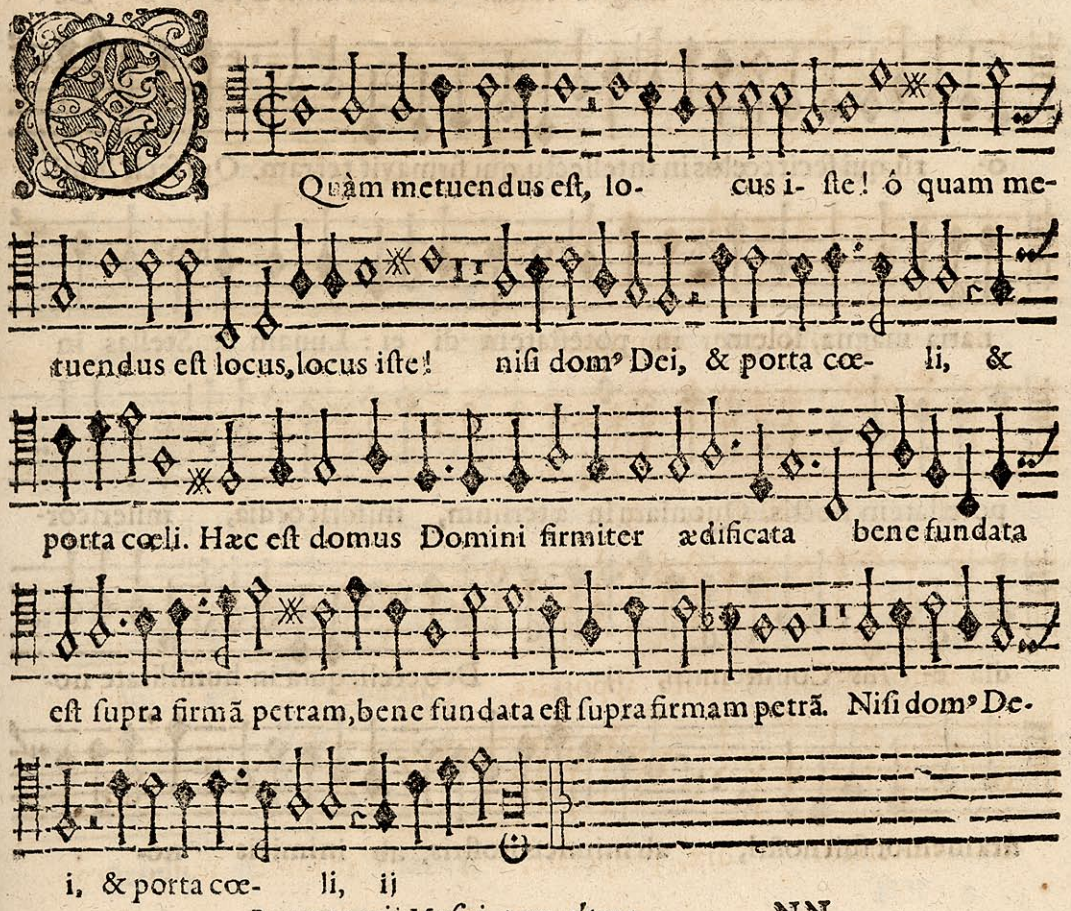 O
Quàm metuendus eſt, lo- cus i- ſte! ô quam me-
tuendus eſt locus, locus iſte! niſi domꝰ Dei, & porta cœ- li, &
porta cœli. Hæc eſt domus Domini firmiter ædificata bene fundata
eſt ſupra firmã petram, bene fundata eſt ſupra firmam petrã. Niſi domꝰ De-
i, & porta cœ- li, ij
NN